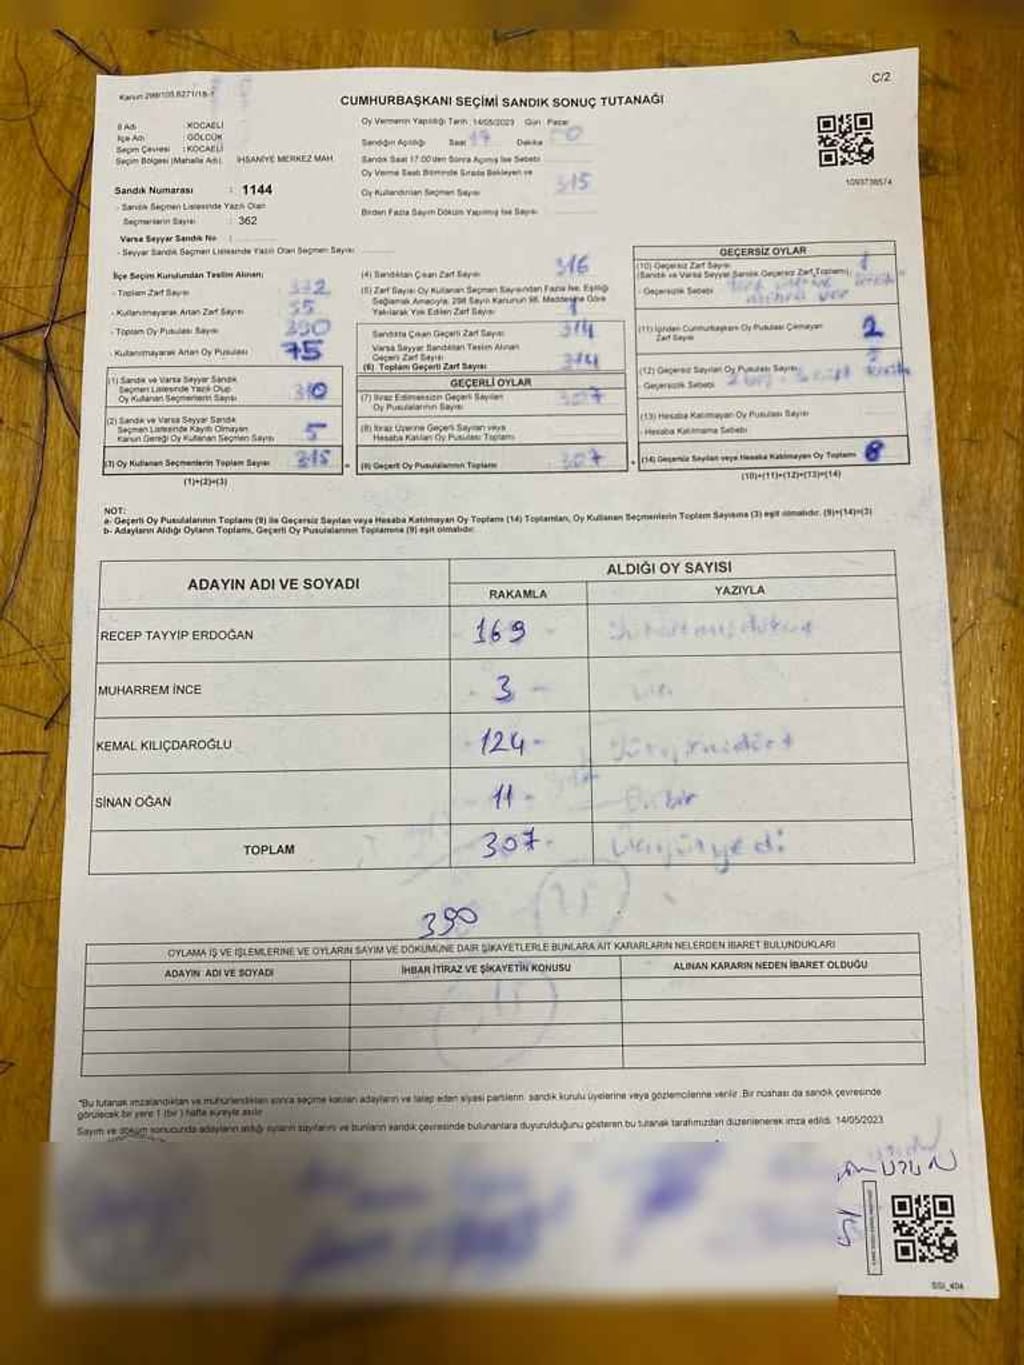 C/2
Kanun 298/105,6271/18-1
CUMHURBAŞKANI SEÇİMİ SANDIK SONUÇ TUTANAĞI
İl Adı : KOCAELİ
İlçe Adı : GÖLCÜK
Seçim Çevresi : KOCAELİ
Seçim Bölgesi (Mahalle Adı) İHSANİYE MERKEZ MAH.
Sandık Numarası : 1144
- Sandık Seçmen Listesinde Yazılı Olan
Seçmenlerin Sayısı : 362
Varsa Seyyar Sandık No :
- Seyyar Sandık Seçmen Listesinde Yazılı Olan Seçmen Sayısı
Oy Vermenin Yapıldığı Tarih : 14/05/2023 Gün : Pazar
Sandığın Açıldığı Saat 17 Dakika
Sandık Saat 17:00'den Sonra Açılmış İse Sebebi
Oy Verme Saati Bitiminde Sırada Bekleyen ve
Oy Kullandırılan Seçmen Sayısı 315
Birden Fazla Sayım Döküm Yapılmış İse Sayısı
1093738574
İlçe Seçim Kurulundan Teslim Alınan;
- Toplam Zarf Sayısı
- Kullanılmayarak Artan Zarf Sayısı 55
- Toplam Oy Pusulası Sayısı 390
- Kullanılmayarak Artan Oy Pusulası 75
(1) Sandık ve Varsa Seyyar Sandık
Seçmen Listesinde Yazılı Olup
Oy Kullanan Seçmenlerin Sayısı 310
(2) Sandık ve Varsa Seyyar Sandık
Seçmen Listesinde Kayıtlı Olmayan
Kanun Gereği Oy Kullanan Seçmen Sayısı 5
(3) Oy Kullanan Seçmenlerin Toplam Sayısı 315
(1)+(2)=(3)
(4) Sandıktan Çıkan Zarf Sayısı 316
(5) Zarf Sayısı Oy Kullanan Seçmen Sayısından Fazla İse, Eşitliği
Sağlamak Amacıyla, 298 Sayılı Kanunun 98. Maddesine Göre
Yakılarak Yok Edilen Zarf Sayısı 1
Sandıkta Çıkan Geçerli Zarf Sayısı 314
Varsa Seyyar Sandıktan Teslim Alınan
Geçerli Zarf Sayısı
(6) Toplam Geçerli Zarf Sayısı 314
GEÇERLİ OYLAR
(7) İtiraz Edilmeksizin Geçerli Sayılan
Oy Pusulalarının Sayısı 307
(8) İtiraz Üzerine Geçerli Sayılan veya
Hesaba Katılan Oy Pusulası Toplamı
(9) Geçerli Oy Pusulalarının Toplamı 307
GEÇERSİZ OYLAR
(10) Geçersiz Zarf Sayısı 1
(Sandık ve Varsa Seyyar Sandık Geçersiz Zarf Toplamı)
- Geçersizlik Sebebi
(11) İçinden Cumhurbaşkanı Oy Pusulası Çıkmayan
Zarf Sayısı 2
(12) Geçersiz Sayılan Oy Pusulası Sayısı
Geçersizlik Sebebi
(13) Hesaba Katılmayan Oy Pusulası Sayısı
- Hesaba Katılmama Sebebi
(14) Geçersiz Sayılan veya Hesaba Katılmayan Oy Toplamı 8
(10)+(11)+(12)+(13)=(14)
NOT:
a- Geçerli Oy Pusulalarının Toplamı (9) ile Geçersiz Sayılan veya Hesaba Katılmayan Oy Toplamı (14) Toplamları, Oy Kullanan Seçmenlerin Toplam Sayısına (3) eşit olmalıdır. (9)+(14)=(3)
b- Adayların Aldığı Oyların Toplamı, Geçerli Oy Pusulalarının Toplamına (9) eşit olmalıdır.
ADAYIN ADI VE SOYADI ALDIĞI OY SAYISI
RAKAMLA YAZIYLA
RECEP TAYYİP ERDOĞAN 169
MUHARREM İNCE 3
KEMAL KILIÇDAROĞLU 124 Yüzyirmidört
SİNAN OĞAN 11 Onbir
TOPLAM 307 Üçyüzyedi
390
OYLAMA İŞ VE İŞLEMLERİNE VE OYLARIN SAYIM VE DÖKÜMÜNE DAİR ŞİKAYETLERLE BUNLARA AİT KARARLARIN NELERDEN İBARET BULUNDUKLARI
ADAYIN ADI VE SOYADI İHBAR İTİRAZ VE ŞİKAYETİN KONUSU ALINAN KARARIN NEDEN İBARET OLDUĞU
"Bu tutanak imzalandıktan ve mühürlendikten sonra seçime katılan adayların ve talep eden siyasi partilerin sandık kurulu üyelerine veya gözlemcilerine verilir. Bir nüshası da sandık çevresinde
görülecek bir yere 1 (bir) hafta süreyle asılır.
Sayım ve döküm sonucunda adayların aldığı oyların sayılarını ve bunların sandık çevresinde bulunanlara duyurulduğunu gösteren bu tutanak tarafımızdan düzenlenerek imza edildi. 14/05/2023
SSI_404